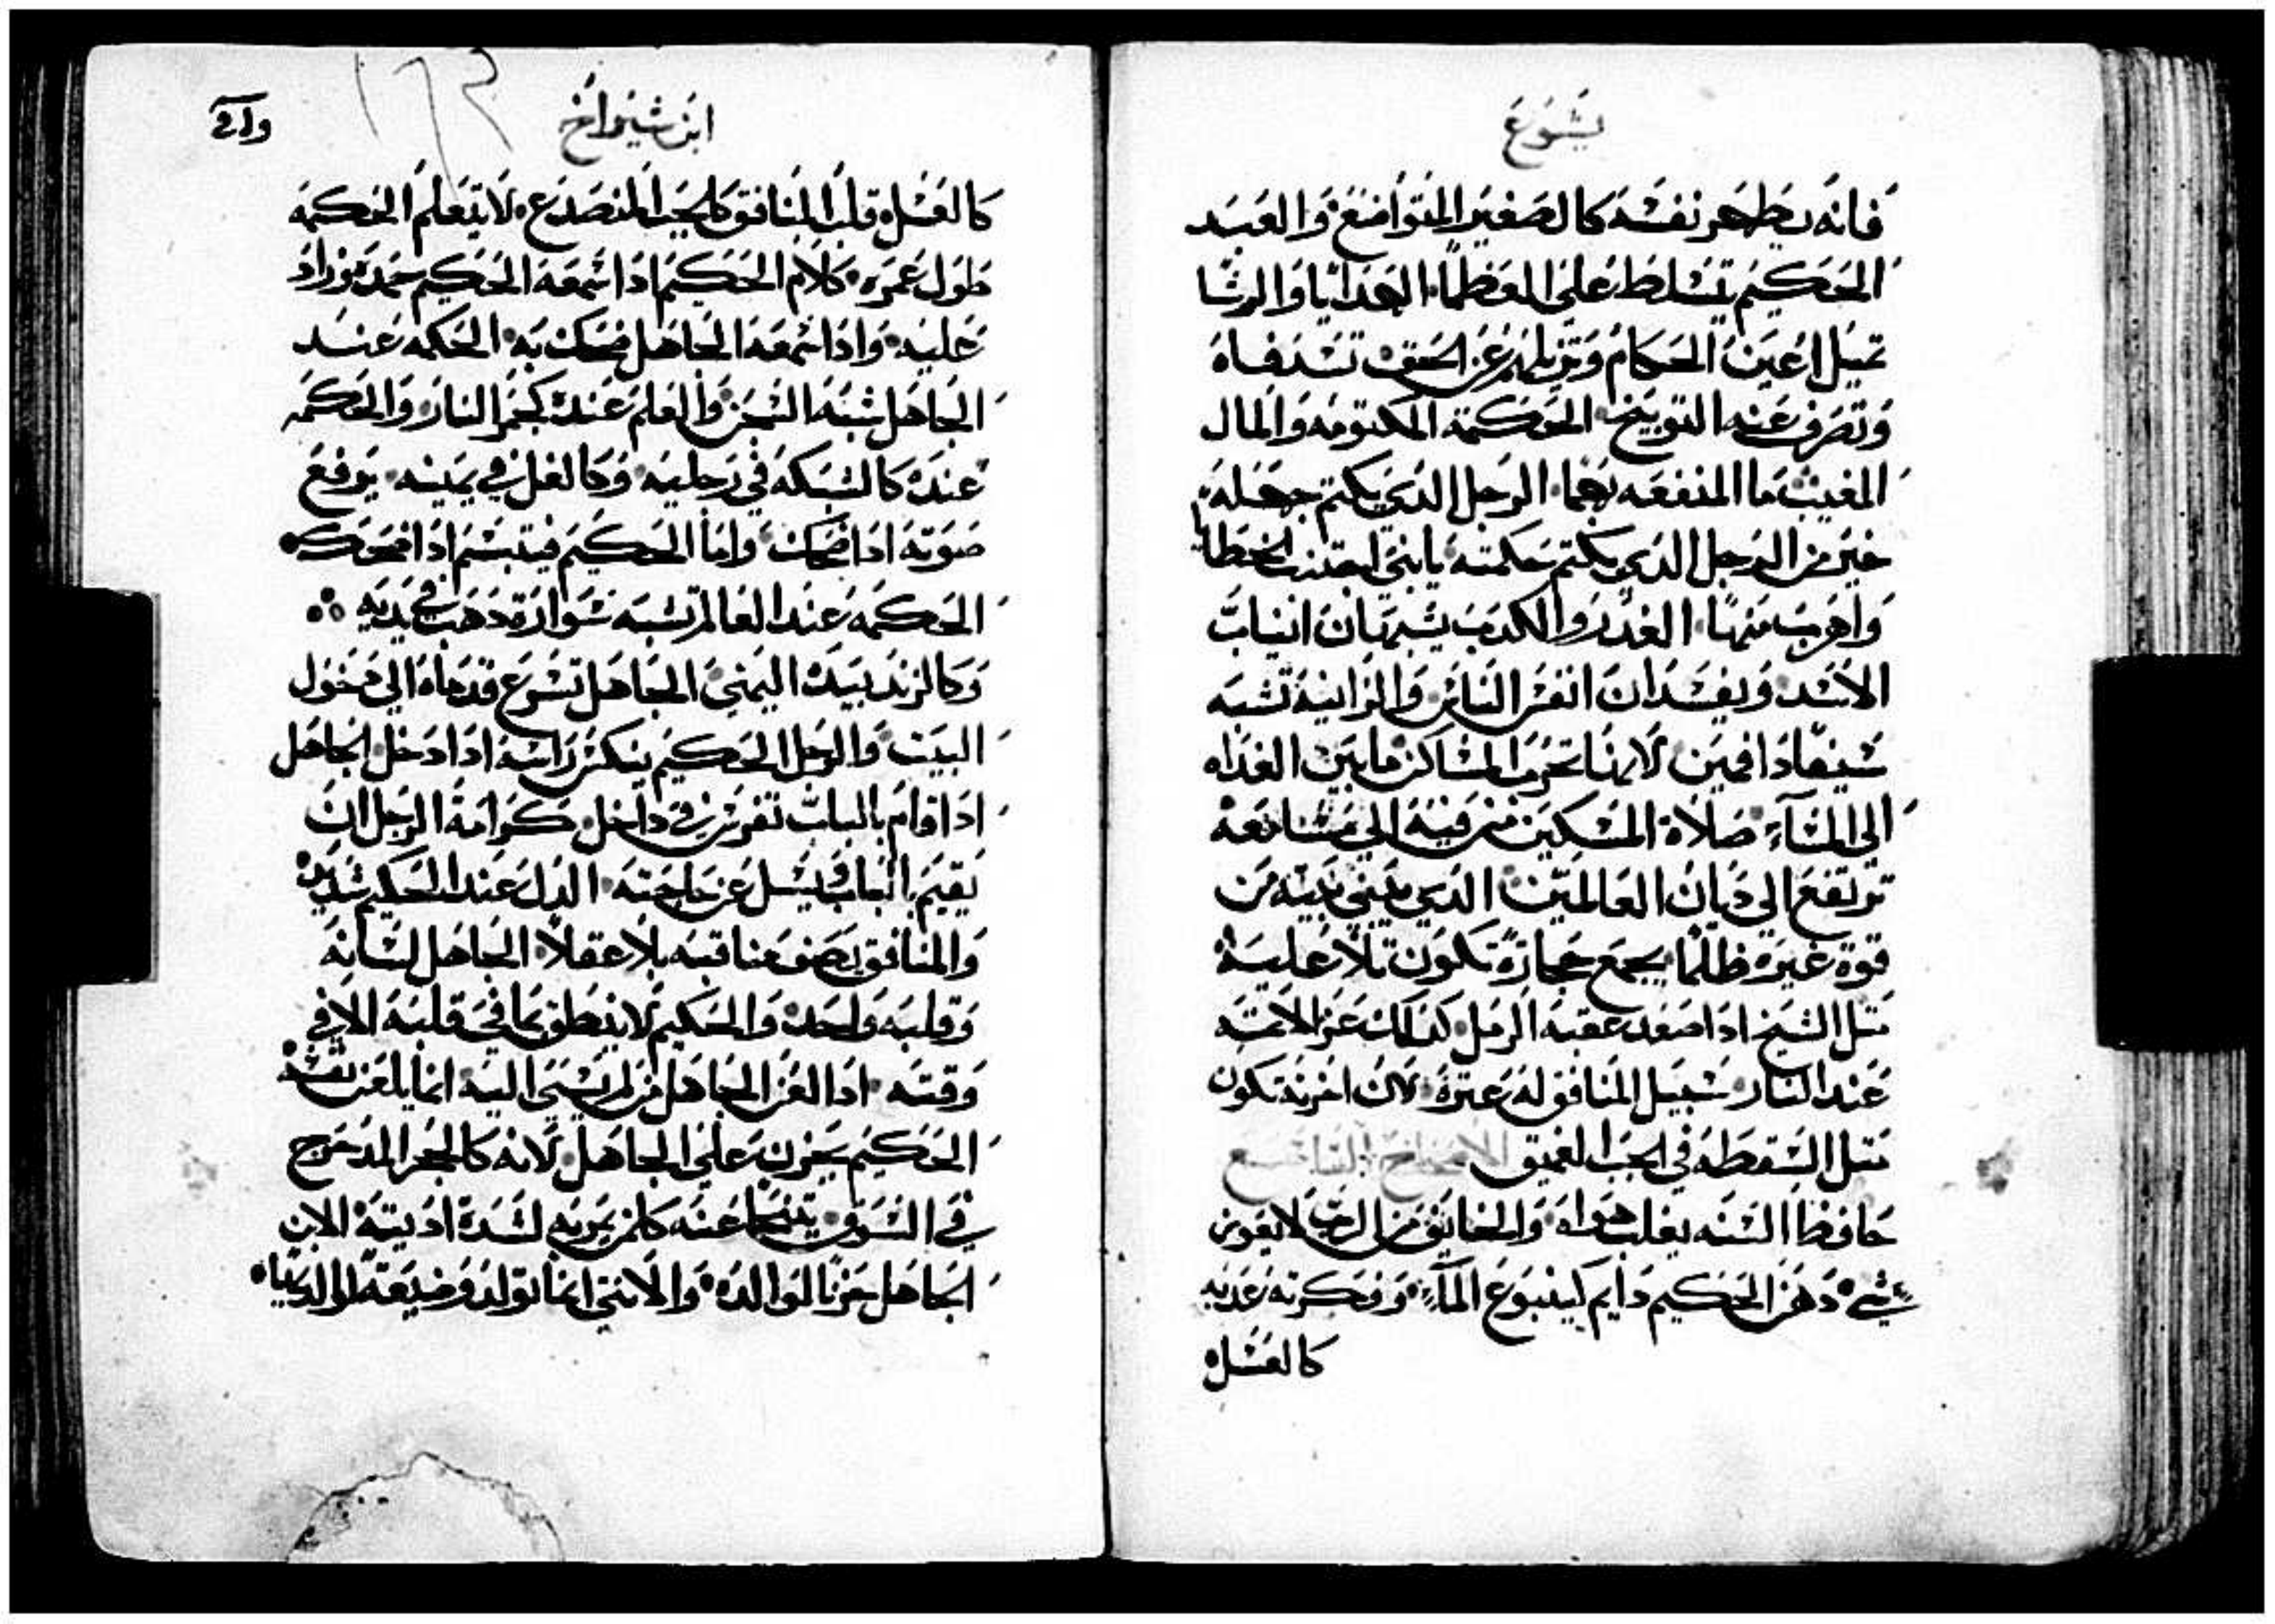 يشوع
فانه يطهر نفسه كالصغير المتواضع والعبد
الحكيم يتسلط على العظما الهدايا والرشا
تميل اعين الحكام وتزيلهم عن الحق تسد فاه
وتصرف عنه التوبيخ الحكمة المكتومه والمال
المغيب ما المنفعه بهما الرجل الدي يكتم جهله
خير من الرجل الدي يكتم حكمته يا بني اجتنب الخطايا
واهرب منها الغدر والكدب يشبهان انياب
الاسد ويفسدان انفس الناس والزانية تشبه
سيفا دا فمين لانها تخرب المساكن ما بين الغداه
الي المساء صلاة المسكين من فيه الي مسامعه
ترتفع الي ديان العالمين الدي يبني بيته من
قوة غيره ظلما يجمع حجارة تكون تلا عليه
متل الشيخ ادا صعد عقبة الرمل كدلك عز الاتمه
عند النار سبيل المنافق له عترة لان اخرته تكون
متل السقطه في الجب العميق الاصحاح التاسع
حافظ السنه يغلب هواه والخايف من الرب لا يعوزه
شي دهن الحكيم دايم كينبوع الماء وفكرته عدبه
كالعسل
ابن شيراخ
كالعسل قلب المنافق كالجب المنصدع لا يتعلم الحكمه
طول عمره كلام الحكيم ادا سمعه الحكيم حمده وزاد
عليه وادا سمعه الجاهل ضحك به الحكمه عند
الجاهل شبه السجن والعلم عنده كجمر النار والحكمه
عنده كالشبكه في رجليه وكالغل في يمينه يرفع
صوته ادا ضحك واما الحكيم فيتبسم ادا ضحك
الحكمه عند العالم تشبه سوارة دهب في يديه
وكالزند بيده اليمني الجاهل تسرع قدماه الي دخول
البيت والرجل الحكيم ينكس راسه ادا دخل الجاهل
ادا قام بالباب تفرس في داخل كرامة الرجل ان
يقيم بالباب فيسل عن حاجته الدل عند الحكيم شديد
والمنافق يصف مناقبه بلا عقلا الجاهل لسانه
وقلبه واحد والحكيم لا ينطق بما في قلبه الا في
وقته ادا لعن الجاهل من لم يسي اليه انما يلعن نفسه
الحكيم يحزن علي الجاهل لانه كالحجر المدحرج
في السوق يتنحا عنه كلمن يمر به لشدة اديته الابن
الجاهل حزنا لوالده والانتي انما تولد وضيعة لوالديها